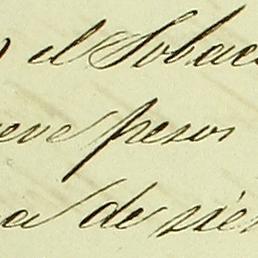 el Tobaco
eve pesos
a de sier